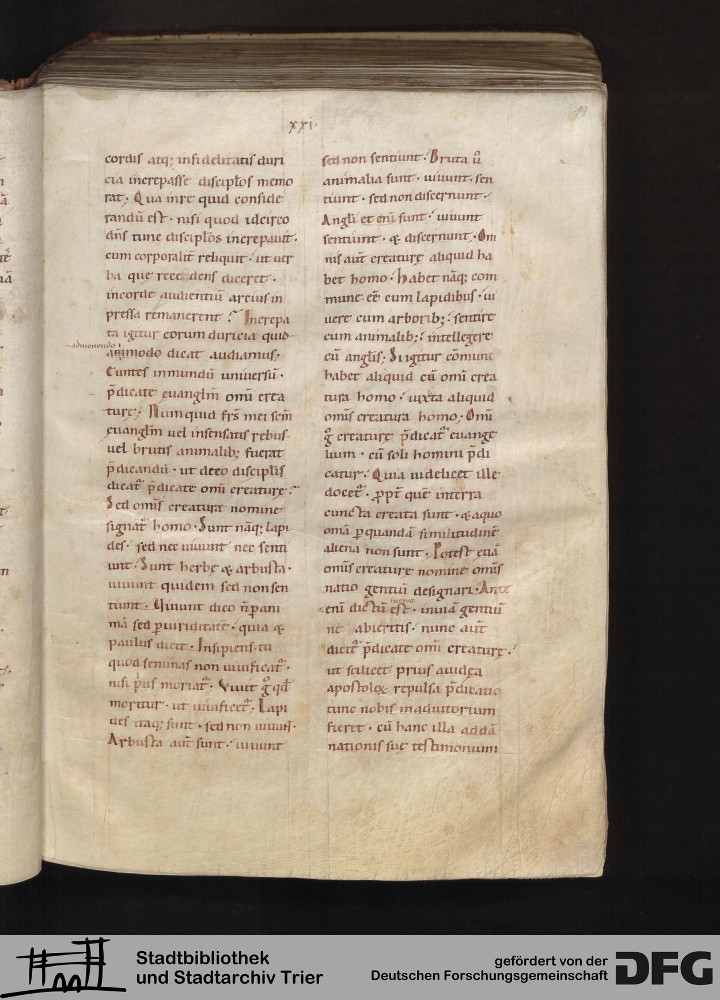 xxi·
19
cordis atq; infidelitatis duri
cia increpasse discipłos memo
rat· Qua inre quid conside
randū est· nisi quod idcirco
dñs tunc discipłos increpauit·
cum corporalit̄ reliquit· ut uer
ba que recedens diceret·
incorde audientiū arcius in
pressa remanerent? Increpa
ta igitur eorum duricia quid
admonendo
ammodo dicat audiamus;
Euntes inmundū uniuersū·
p̄dicate euanglm̄ omi crea
turę; Numquid frs̄ mei scm̄
euanglm̄ uel insensatis rebus
uel brutis animalib; fuerat
p̄dicandū· ut deeo disciplis
dicat̄ p̄dicate omi creaturę?
Sed omis creaturę nomine
signat̄ homo· Sunt nāq; lapi
des· sed nec uiuunt nec senti
unt· Sunt herbę & arbusta·
uiuunt quidem sed nonsen
tiunt· Uiuunt dico n̄ p ani
mā sed p uiriditatē· quia &
paulus dicit· Insipiens tu
quod seminas non uiuificat̄·
nisi p̄us moriat̄· Viuit g̊ qd̄
moritur· ut uiuificet̄· Lapi
des itaq; sunt· sed non uiuunt·
Arbusta aut̄ sunt· uiuunt
sed non sentiunt· Bruta ů
animalia sunt· uiuunt· sen
tiunt· sed non discernunt·
Angli et eni sunt· uiuunt
sentiunt· & discernunt· Om
nis aut̄ creaturę aliquid ha
bet homo· habet nāq; com
mune eē cum lapidibus· ui
uere cum arborib; sentire
cum animalib; intellegere
cū angłis; Si igitur cōmune
habet aliquid cū omi crea
tura homo· iuxta aliquid
omis creatura homo; Omi
g̊ creaturę p̄dicat̄ euange
lium· cū soli homini p̄di
catur· Quia uidelicet ille
docet̄· ꝓpt̄ quē interra
cuncta creata sunt· & aquo
omā p quandā similitudinē
aliena non sunt· Potest etiā
omis creaturę nomine omis
natio gentiū designari· Ante
enī dictū est· inuiā gentiū
ne abieritis· nunc aut̄
dicit̄ p̄dicate omi creaturę·
ut scilicet prius a iudęa
apostolox repulsa p̄dicatio
tunc nobis inadiutorium
fieret· cū hanc illa addā
nationis suę testimonium
Stadtbibliothek
und Stadtarchiv Trier
gefördert von der
Deutschen Forschungsgemeinschaft
DFG